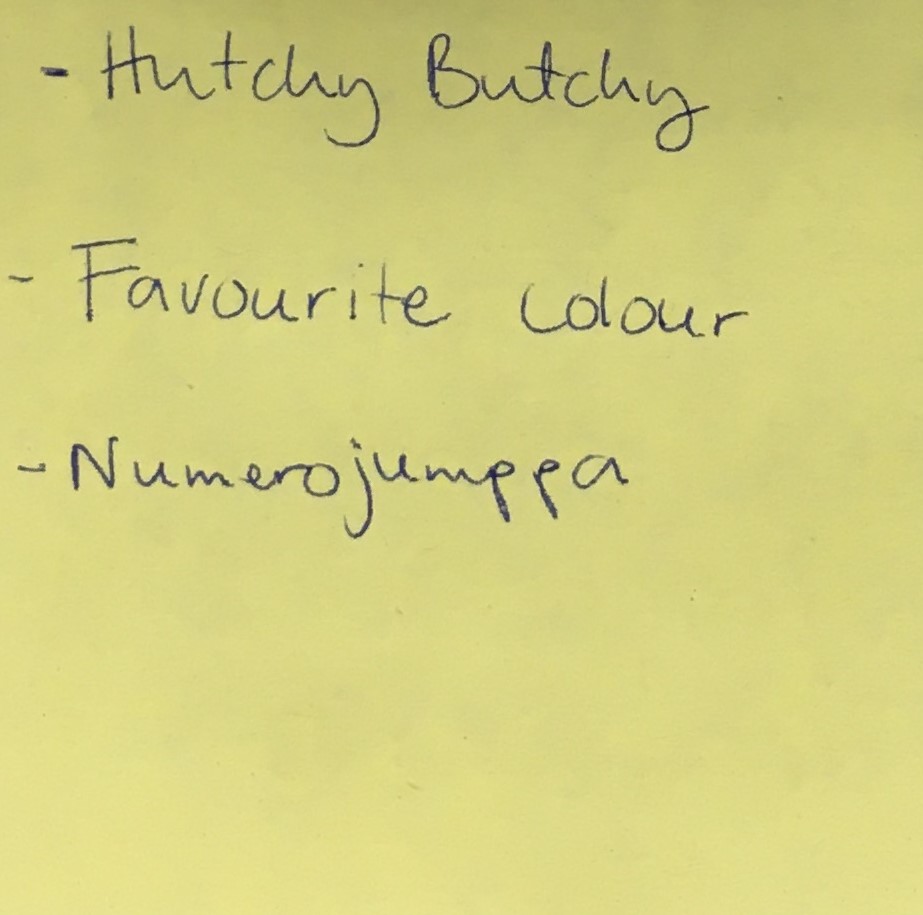 - Hutchy Butchy
- Favourite colour
- Numerojumppa